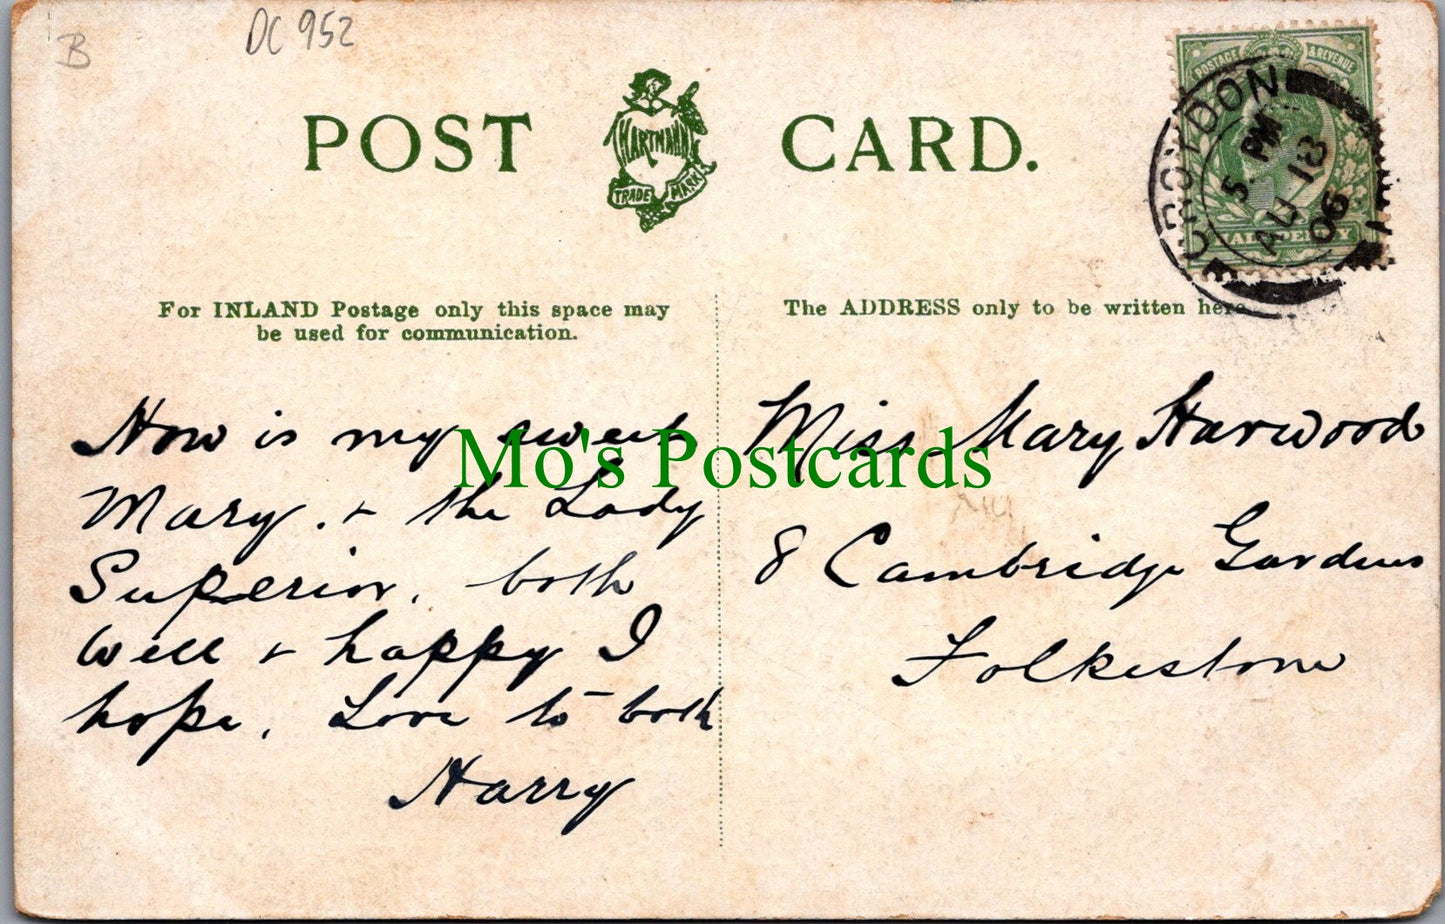 B
DC 952
POSTAGE & REVENUE
HALFPENNY
CROYDON
5. PM
AU 18
06
POST CARD.
HARTMANN
TRADE MARK
For INLAND Postage only this space may
be used for communication.
The ADDRESS only to be written here
How is my sweet
Mary. + the Lady
Superior, both
well + happy I
hope. Love to both
Harry
Miss Mary Harwood
8 Cambridge Gardens
Folkestone
Mo's Postcards